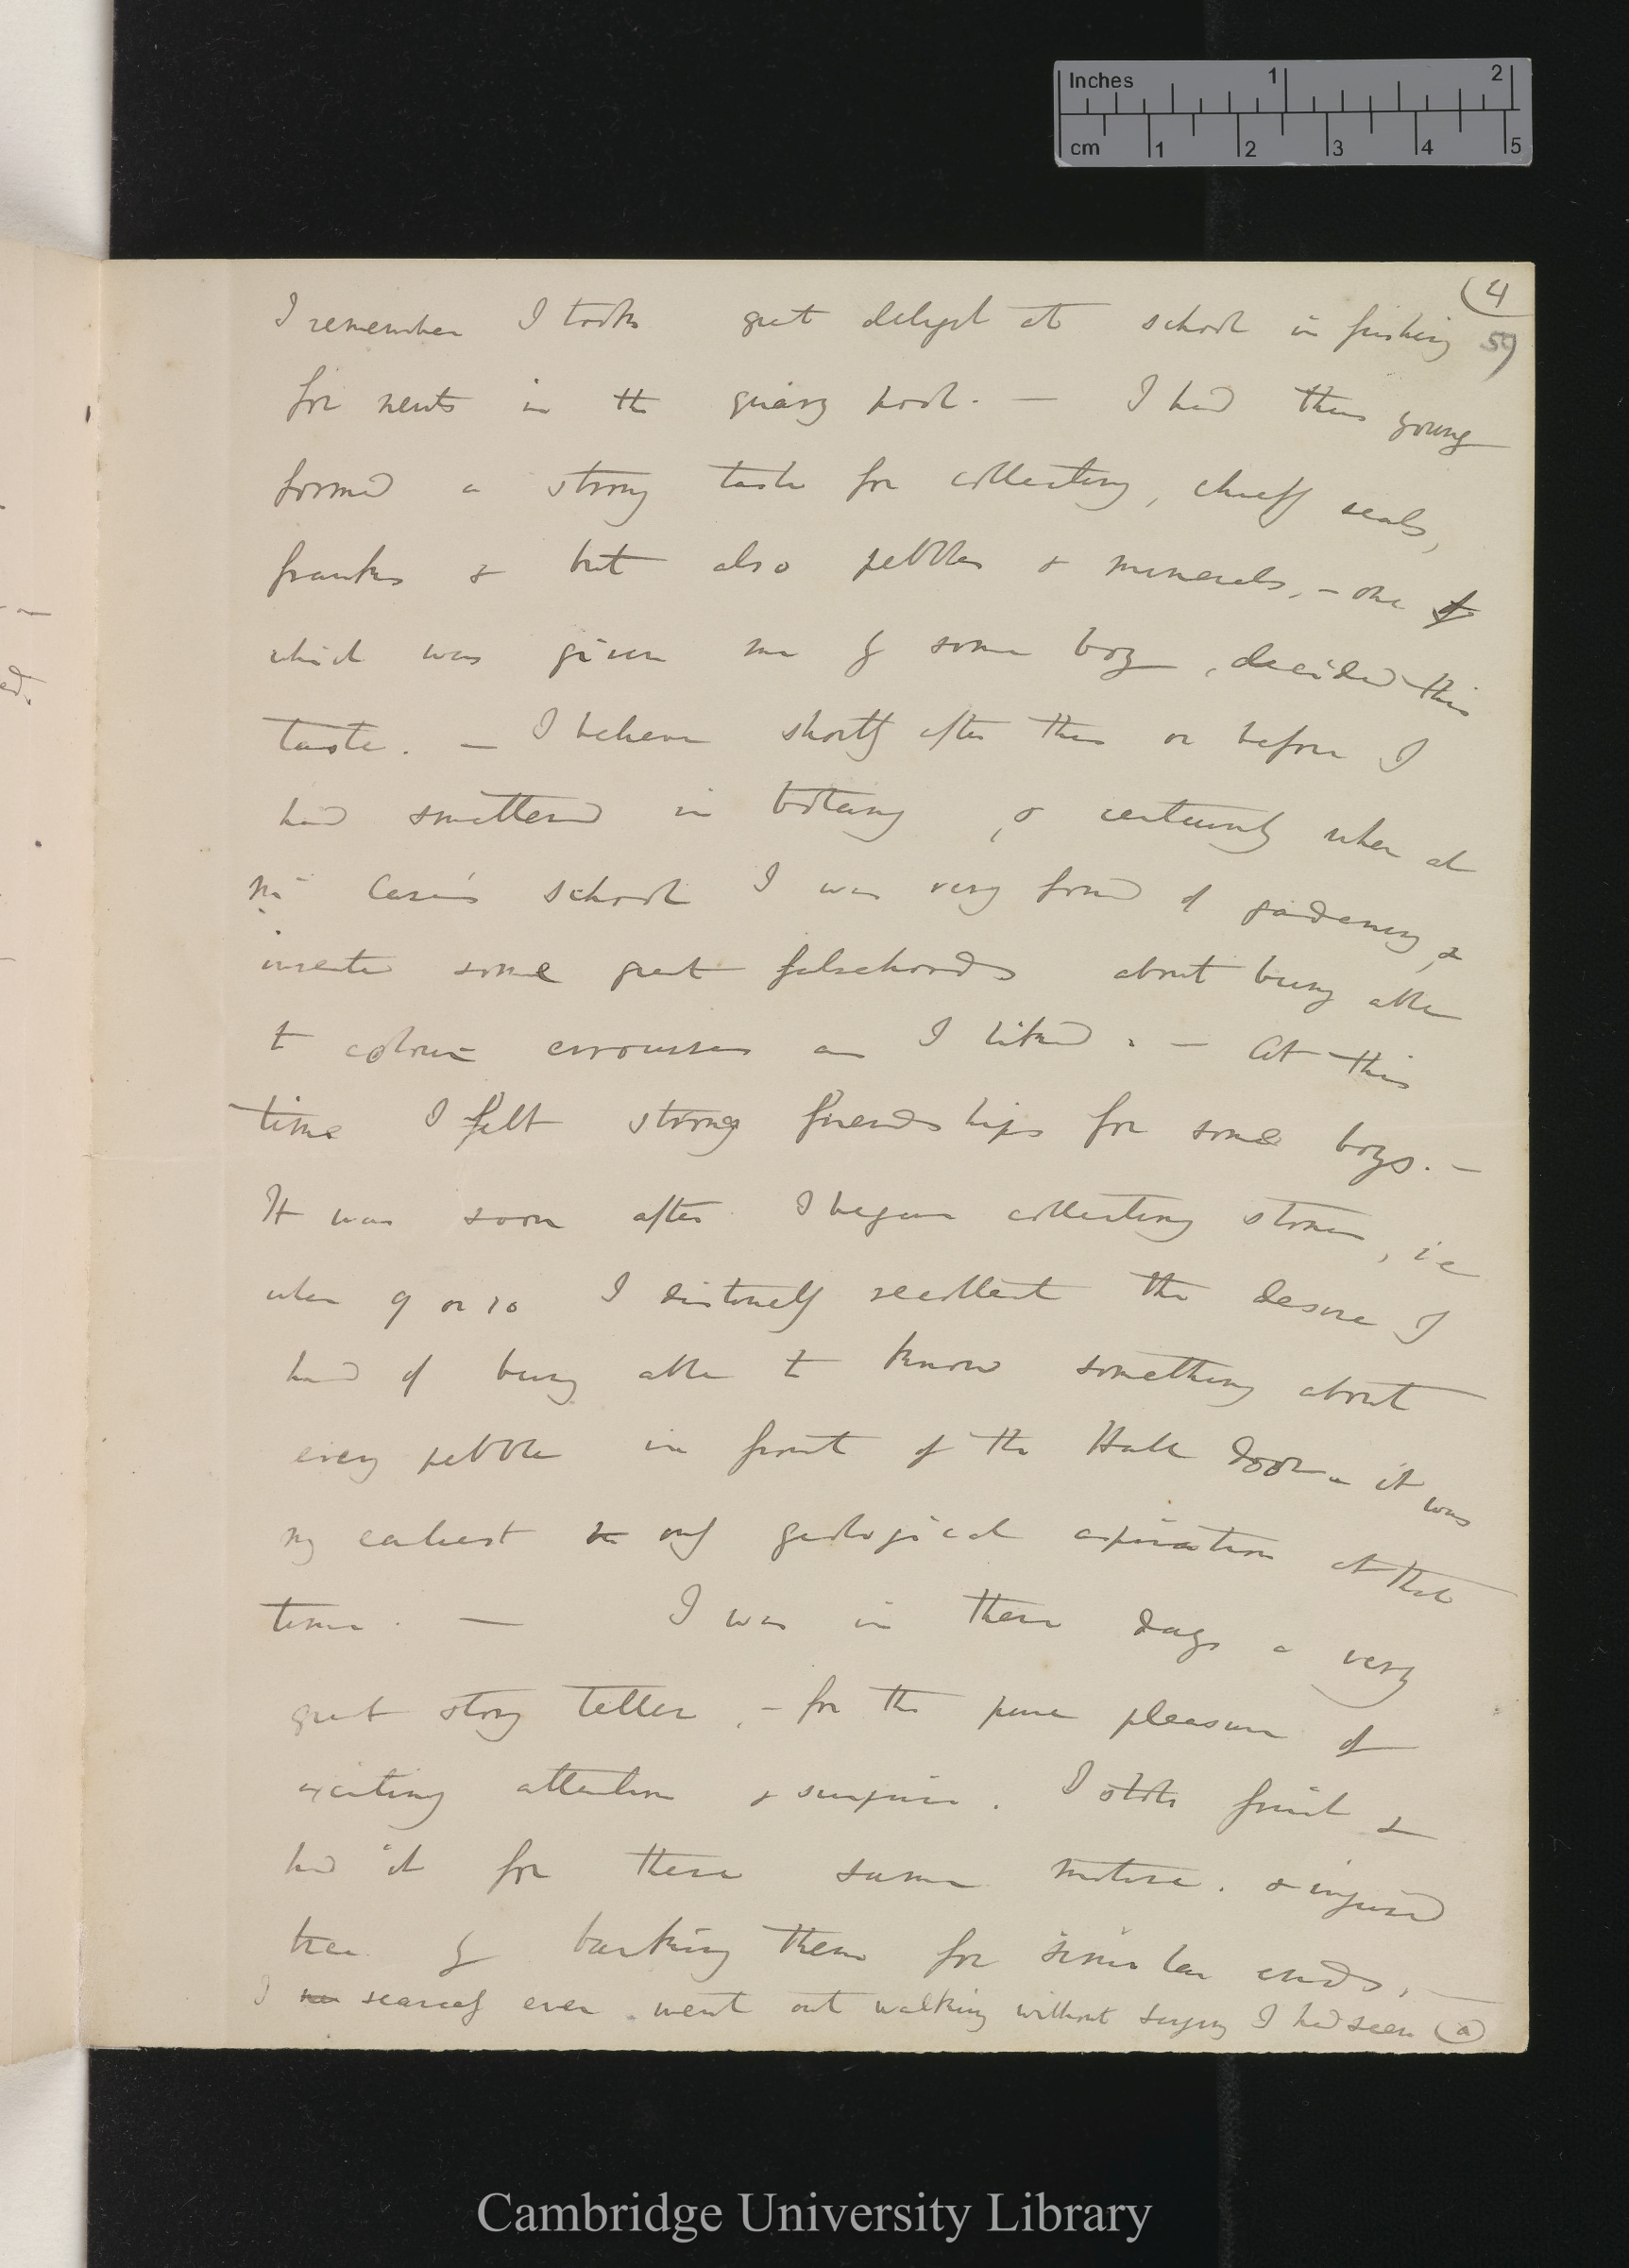 Inches 1 2
cm 1 2 3 4 5
(4
59
I remember I took great delight at school in fishing
for newts in the quarry pool. — I had thus young
formed a strong taste for collecting, chiefly seals,
franks & but also pebbles & minerals, — one of
which was given me by some boy, decided this
taste. — I believe shortly after this or before I
had smattered in botany, & certainly when at
Mr Case's school I was very fond of gardening, &
invented some great falsehoods about being able
to colour crocuses as I liked. — At this
time I felt strong friendships for some boys. —
It was soon after I began collecting stones, i.e
when 9 or 10 I distinctly recollect the desire I
had of being able to know something about
every pebble in front of the Hall door — it was
my earliest only geological aspiration at that
time. — I was in these days a very
great story teller, — for the pure pleasure of
exciting attention & surprise. I stole fruit &
hid it for these same motive. & injured
trees by barking them for similar ends. —
I scarcely ever went out walking without saying I had seen (a)
Cambridge University Library